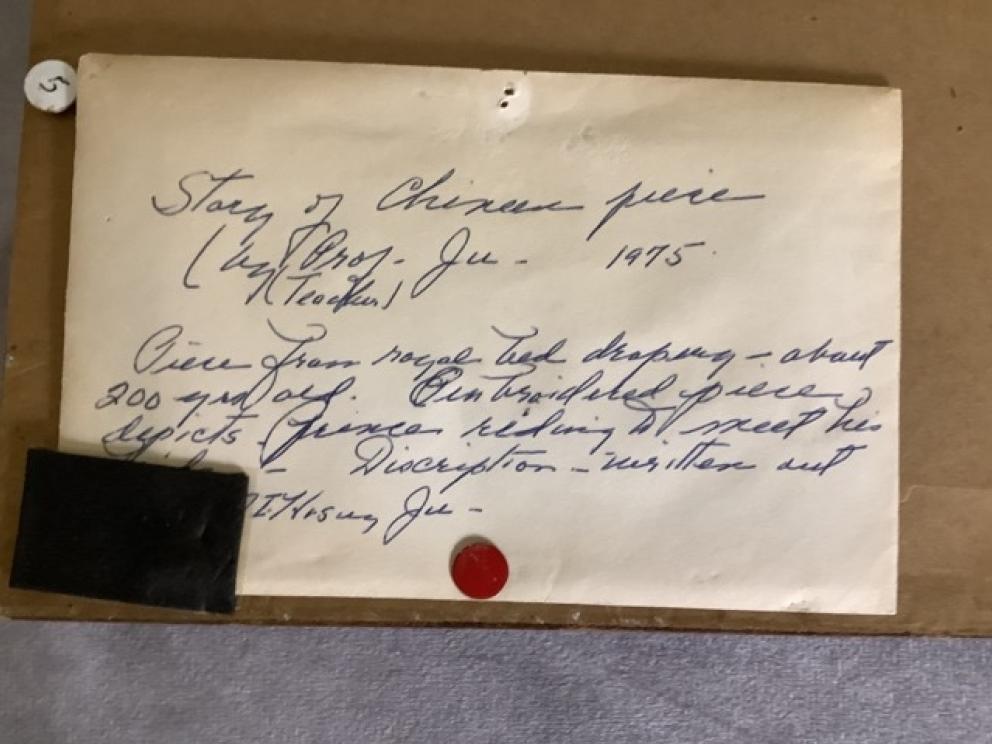 5
Story of Chinese piece
(by Prof. Ju - 1975
(Teacher)
Piece from royal bed drapery - about
200 yrs old. Embroidered piece
depicts prince riding to meet his
Discription - written out
Ju -